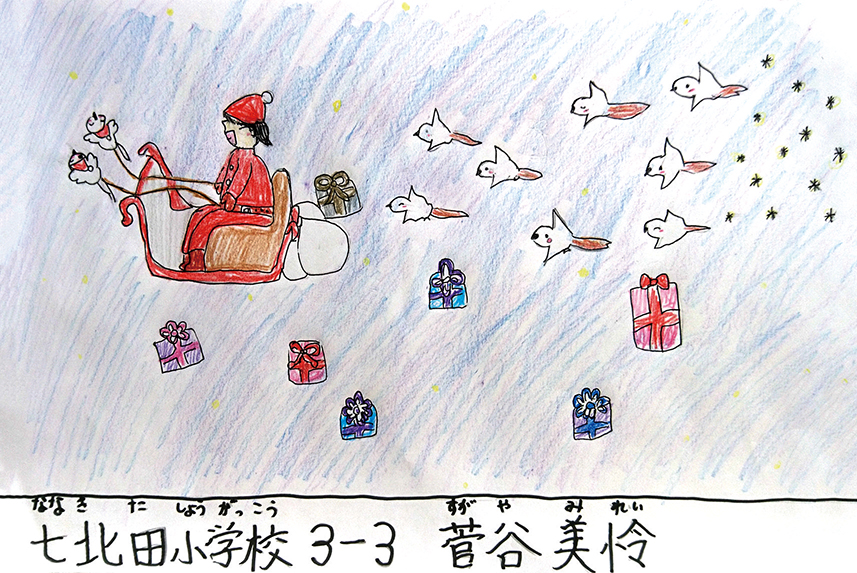 ななきたしょうがっこう すがやみれい
七北田小学校 3-3 菅谷美怜